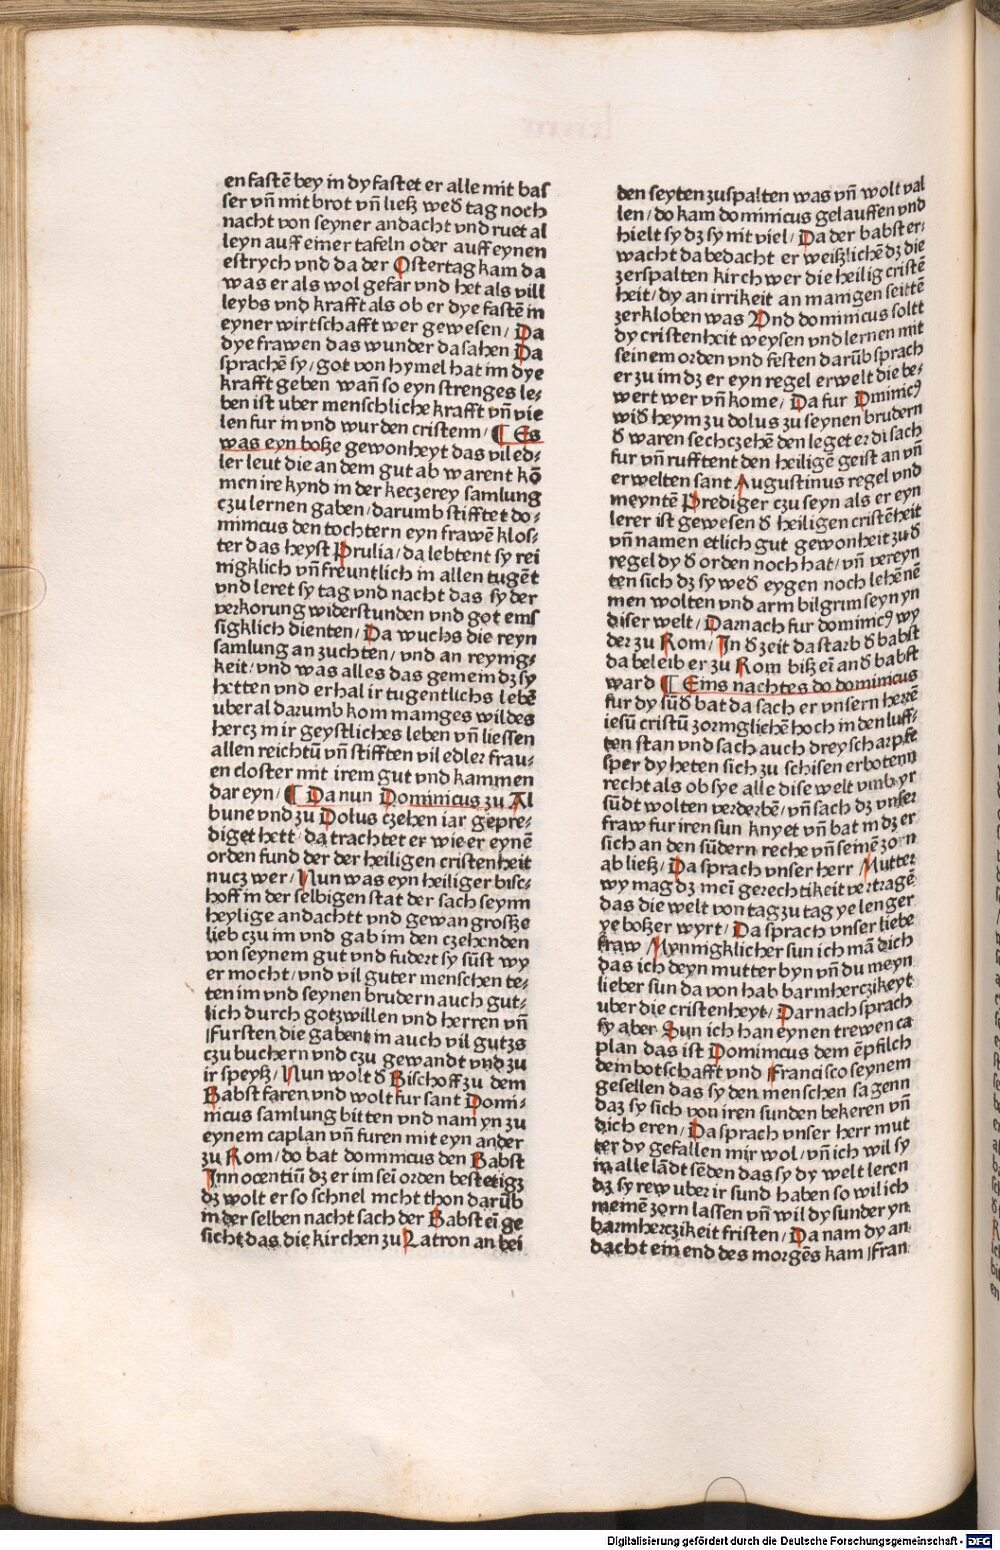 en fastē bey in dy fastet er alle mit bas
ser vñ mit brot vñ liesz wed̄ tag noch
nacht von seyner andacht vnd ruet al
leyn auff einer tafeln oder auff eynen
estrych vnd da der Ostertag kam da
was er als wol gefar vnd het als vill
leybs vnd krafft als ob er dye fastē in
eyner wirtschafft wer gewesen / Da
dye frawen das wunder da sahen Da
sprachē sy / got von hymel hat im dye
krafft geben wañ so eyn strenges le⸗
ben ist uber menschliche krafft vñ vie
len fur in vnd wurden cristenn / ¶ Es
was eyn bosze gewonheyt das vil ed⸗
ler leut die an dem gut ab warent kō
men ire kynd in der keczerey samlung
czu lernen gaben / darumb stifftet do⸗
minicus den tochtern eyn frawē klos⸗
ter das heyst Prulia / da lebtent sy rei
nigklich vñ freuntlich in allen tugēt
vnd leret sy tag vnd nacht das sy der
verkorung widerstunden vnd got ems
sigklich dienten / Da wuchs die reyn
samlung an zuchten / vnd an reynig⸗
keit / vnd was alles das gemein dz sy
hetten vnd erhal ir tugentlichs lebē
uberal darumb kom maniges wildes
hercz in ir geystliches leben vñ liessen
allen reichtū vñ stifften vil edler frau⸗
en closter mit irem gut vnd kammen
dar eyn / ¶ Da nun Dominicus zu Al
bune vnd zu Dolus czehen iar gepre⸗
diget hett / da trachtet er wie er eynē
orden fund der der heiligen cristenheit
nucz wer / Nun was eyn heiliger bisc⸗
hoff in der selbigen stat der sach seynn
heylige andachtt vnd gewan grosze
lieb czu im vnd gab im den czehenden
von seynem gut vnd fudert sy sūst wy
er mocht / vnd vil guter menschen te⸗
ten im vnd seynen brudern auch gut⸗
lich durch gotz willen vnd herren vñ
Fursten die gabent in auch vil gutzs
czu buchern vnd czu gewandt vnd zu
ir speysz / Nun wolt d̄ Bischoff zu dem
Babst faren vnd wolt fur sant Domi⸗
nicus samlung bitten vnd nam yn zu
eynem caplan vñ furen mit eyn ander
zu Rom / do bat dominicus den Babst
Innocentiū dz er im sei orden bestetigz
dz wolt er so schnel nicht thon darūb
in der selben nacht sach der Babst ei ge
sicht das die kirchen zu Latron an bei
den seyten zuspalten was vñ wolt val
len / do kam dominicus gelauffen vnd
hielt sy dz sy nit viel / Da der babst er⸗
wacht da bedacht er weiszlichē dz die
zerspalten kirch wer die heilig cristē
heit / dy an irrikeit an manigen seittē
zerkloben was Vnd dominicus soltt
dy cristenheit weysen vnd lernen mit
seinem orden vnd festen darūb sprach
er zu im dz er eyn regel erwelt die be⸗
wert wer vñ kome / Da fur Dminicꝰ
wid̄ heym zu dolus zu seynen brudern
d̄ waren sechczehē den leget er di sach
fur vñ rufftent den heiligē geist an vñ
erwelten sant Augustinus regel vnd
meyntē Prediger czu seyn als er eyn
lerer ist gewesen d̄ heiligen cristēheit
vñ namen etlich gut gewonheit zu d̄
regel dy d̄ orden noch hat / vñ vereyn
ten sich dz sy wed̄ eygen noch lehē nē
men wolten vnd arm bilgrim seyn yn
diser welt / Darnach fur dominicꝰ wy
der zu Rom / In d̄ zeit da starb d̄ babst
da beleib er zu Rom bisz eī and̄ babst
ward ¶ Eins nachtes do dominicus
fur dy sūd̄ bat da sach er vnsern herrē
iesū cristū zorniglichē hoch in den luff⸗
ten stan vnd sach auch drey scharpfe
sper dy heten sich zu schisen erbotenn
recht als ob sye alle dise welt vmb yr
sūdt wolten verderbē / vñ sach dz vnser
fraw fur iren sun knyet vñ bat in dz er
sich an den sūdern reche vñ seinē zorn
ab liesz / Da sprach vnser herr Mutter
wy mag dz mei gerechtikeit vertragē
das die welt von tag zu tag ye lenger
ye boszer wyrt / Da sprach vnser liebe
fraw Mynnigklicher sun ich mā dich
das ich deyn mutter byn vñ du meyn
lieber sun da von hab barmherczikeyt
uber die cristenheyt / Darnach sprach
sy aber Sun ich han eynen trewen ca
plan das ist Dominicus dem ēpfilch
dein botschafft vnd Francisco seynem
gesellen das sy den menschen sagenn
daz sy sich von iren sunden bekeren vñ
dich eren / Da sprach vnser herr mut
ter dy gefallen mir wol / vñ ich wil sy
in alle lādt sēden das sy dy welt leren
dz sy rew uber ir sund haben so wil ich
meinē zorn lassen vñ wil dy sunder yn
barmherczikeit fristen / Da nam dy an
dacht ein end des morgēs kam Fran
Digitalisierung gefördert durch die Deutsche Forschungsgemeinschaft - DFG